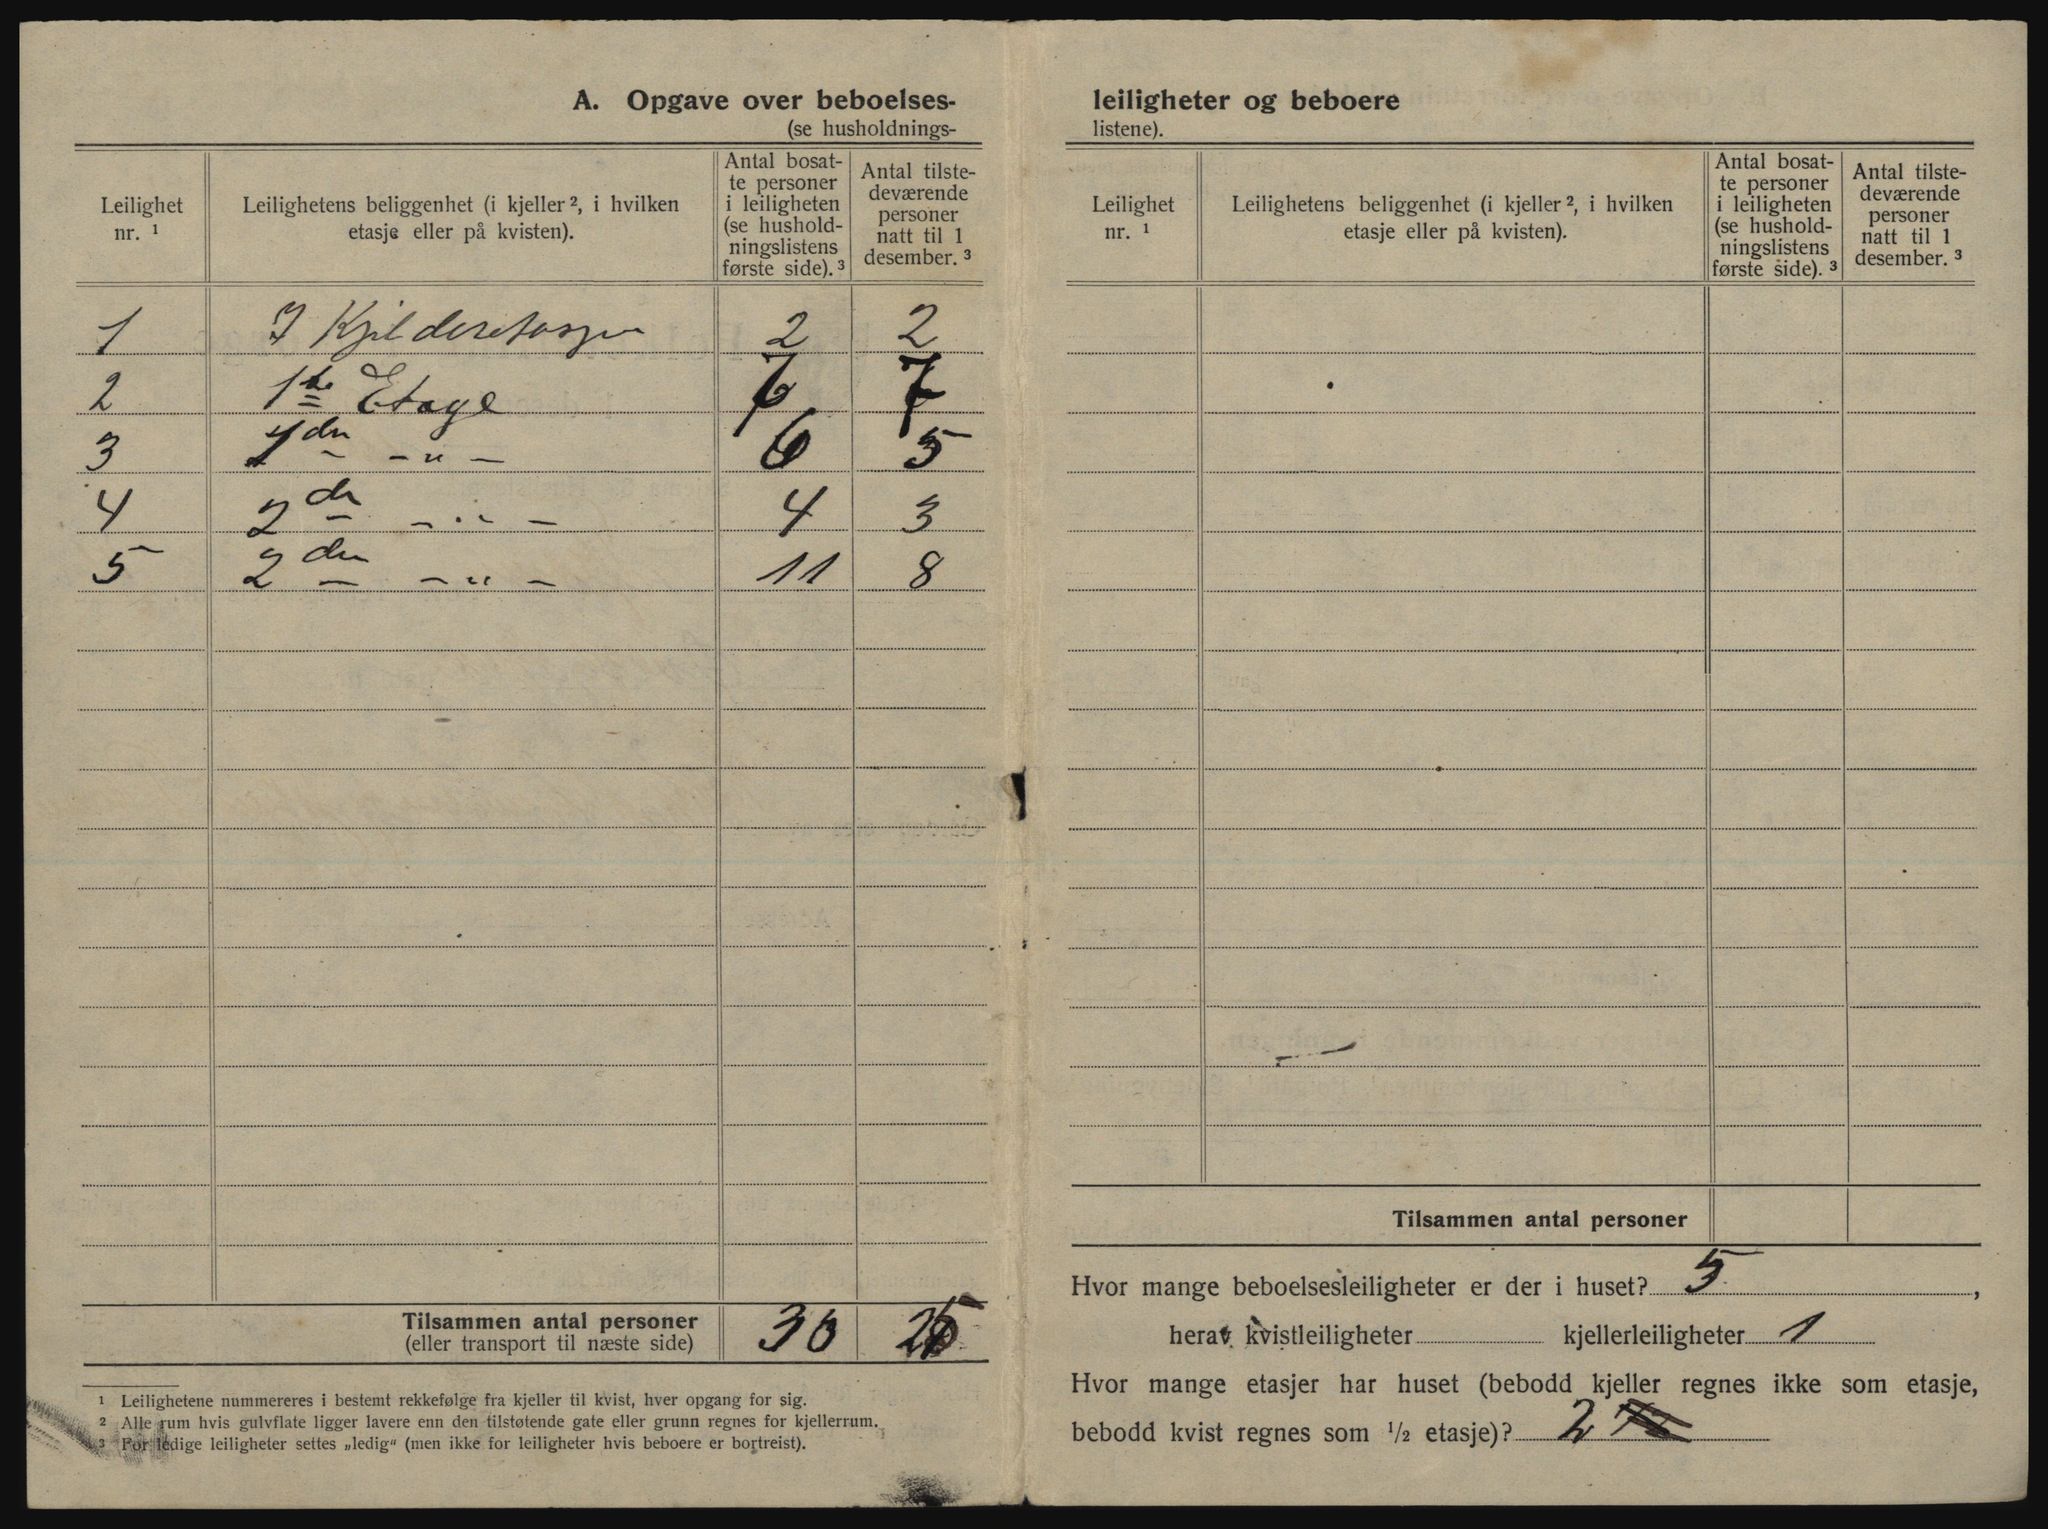 A. Opgave over beboelses-
(se husholdnings-
Leilighet nr. ¹
Leilighetens beliggenhet (i kjeller ², i hvilken etasje eller på kvisten).
Antal bosat-
te personer
i leiligheten
(se hushold-
ningslistens
første side). ³
Antal tilste-
deværende
personer
natt til 1
desember. ³
1 I 2 2
2 1ste Etage 7 7
3 1 - " - 6 5
4 2den - " - 4 3
5 2den - " - 11 8
Tilsammen antal personer 30 25
(eller transport til næste side)
¹ Leilighetene nummereres i bestemt rekkefølge fra kjeller til kvist, hver opgang for sig.
² Alle rum hvis gulvflate ligger lavere enn den tilstøtende gate eller grunn regnes for kjellerrum.
³ For ledige leiligheter settes „ledig“ (men ikke for leiligheter hvis beboere er bortreist).
leiligheter og beboere
listene).
Leilighet nr. ¹
Leilighetens beliggenhet (i kjeller ², i hvilken etasje eller på kvisten).
Antal bosat-
te personer
i leiligheten
(se hushold-
ningslistens
første side). ³
Antal tilste-
deværende
personer
natt til 1
desember. ³
Tilsammen antal personer
Hvor mange beboelsesleiligheter er der i huset? 5,
herav kvistleiligheter kjellerleiligheter 1
Hvor mange etasjer har huset (bebodd kjeller regnes ikke som etasje,
bebodd kvist regnes som ½ etasje)? 2